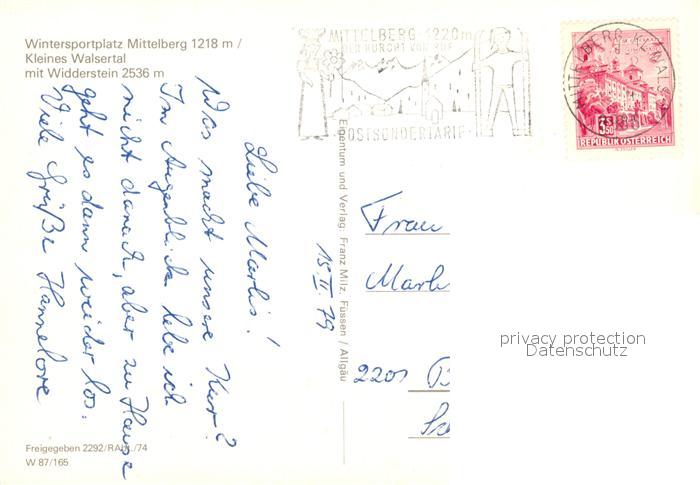 Wintersportplatz Mittelberg 1218 m /
Kleines Walsertal
mit Widderstein 2536 m
MITTELBERG · 1220 m
DER KURORT VON RUF
POSTSONDERTARIF
MITTELBERG, KLWALSERTAL
3.50
REPUBLIK ÖSTERREICH
Liebe Marlis!
Was macht unsere Kur?
Im Augenblick lebe ich
nicht danach, aber zu Hause
geht es dann weider los.
Viele Grüße Hannelore
15.II.79
Eigentum und Verlag: Franz Milz, Füssen / Allgäu
Frau
Marl
2201 B
privacy protection
Datenschutz
Freigegeben 2292/RAbt./74
W 87/165